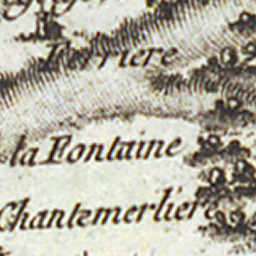 Perriere
la Fontaine
Chantemerliere